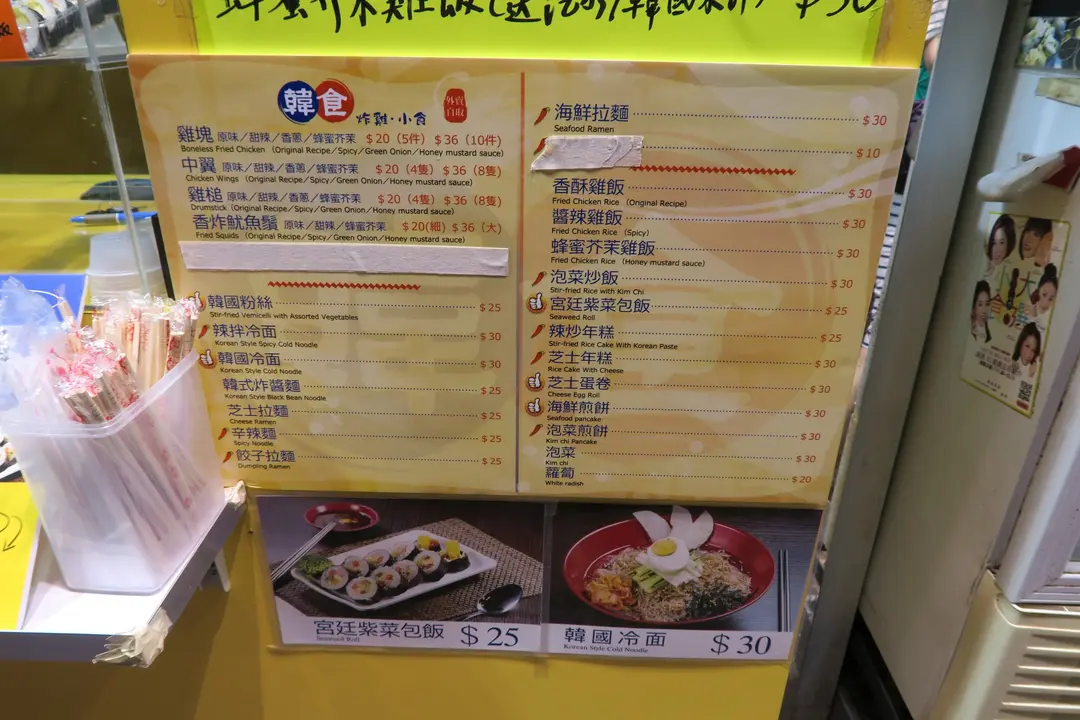 蜂蜜芥末雞飯(送泡菜/韓國米飯) $30
韓食 炸雞·小食 外賣自取
雞塊 原味/甜辣/香蔥/蜂蜜芥茉 $20(5件) $36(10件)
Boneless Fried Chicken (Original Recipe/Spicy/Green Onion/Honey mustard sauce)
中翼 原味/甜辣/香蔥/蜂蜜芥茉 $20(4隻) $36(8隻)
Chicken Wings (Original Recipe/Spicy/Green Onion/Honey mustard sauce)
雞槌 原味/甜辣/香蔥/蜂蜜芥茉 $20(4隻) $36(8隻)
Drumstick (Original Recipe/Spicy/Green Onion/Honey mustard sauce)
香炸魷魚鬚 原味/甜辣/蜂蜜芥茉 $20(細) $36(大)
Fried Squids (Original Recipe/Spicy/Green Onion/Honey mustard sauce)
韓國粉絲 $25
Stir-fried Vemicelli with Assorted Vegetables
辣拌冷面 $30
Korean Style Spicy Cold Noodle
韓國冷面 $30
Korean Style Cold Noodle
韓式炸醬麵 $25
Korean Style Black Bean Noodle
芝士拉麵 $25
Cheese Ramen
辛辣麵 $25
Spicy Noodle
餃子拉麵 $25
Dumpling Ramen
海鮮拉麵 $30
Seafood Ramen
$10
香酥雞飯 $30
Fried Chicken Rice (Original Recipe)
醬辣雞飯 $30
Fried Chicken Rice (Spicy)
蜂蜜芥茉雞飯 $30
Fried Chicken Rice (Honey mustard sauce)
泡菜炒飯 $30
Stir-fried Rice with Kim Chi
宮廷紫菜包飯 $25
Seaweed Roll
辣炒年糕 $25
Stir-fried Rice Cake With Korean Paste
芝士年糕 $30
Rice Cake With Cheese
芝士蛋卷 $30
Cheese Egg Roll
海鮮煎餅 $30
Seafood pancake
泡菜煎餅 $30
Kim chi Pancake
泡菜 $30
Kim chi
蘿蔔 $20
White radish
宮廷紫菜包飯 $25
Seaweed Roll
韓國冷面 $30
Korean Style Cold Noodle